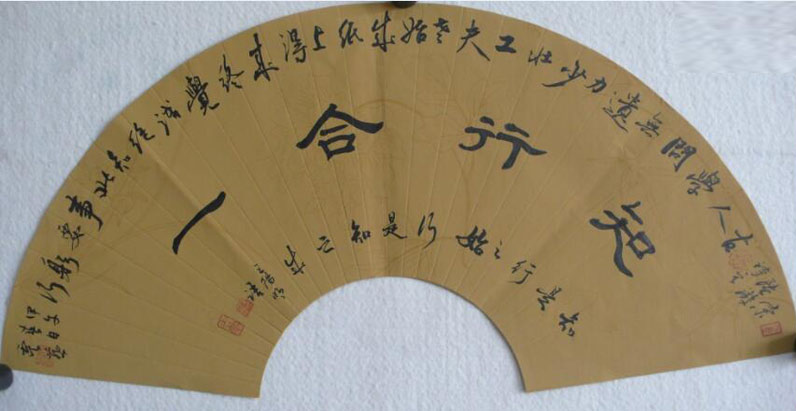 古人學問無遺力少壯工夫老始成紙上得来終覺淺絕知此事要躬行
知行合一
知是行之始行是知之成